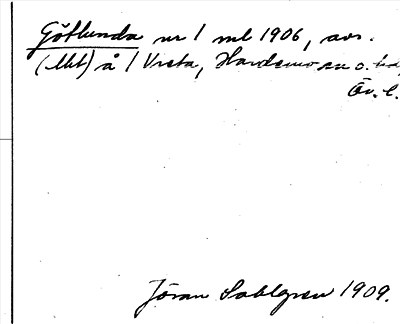 Götlunda nr 1 ml 1906, avs.
(Mkt) å 1 Vreta, Hardemo sn o. hd,
Ör. l.
Jöran Sahlgren 1909.